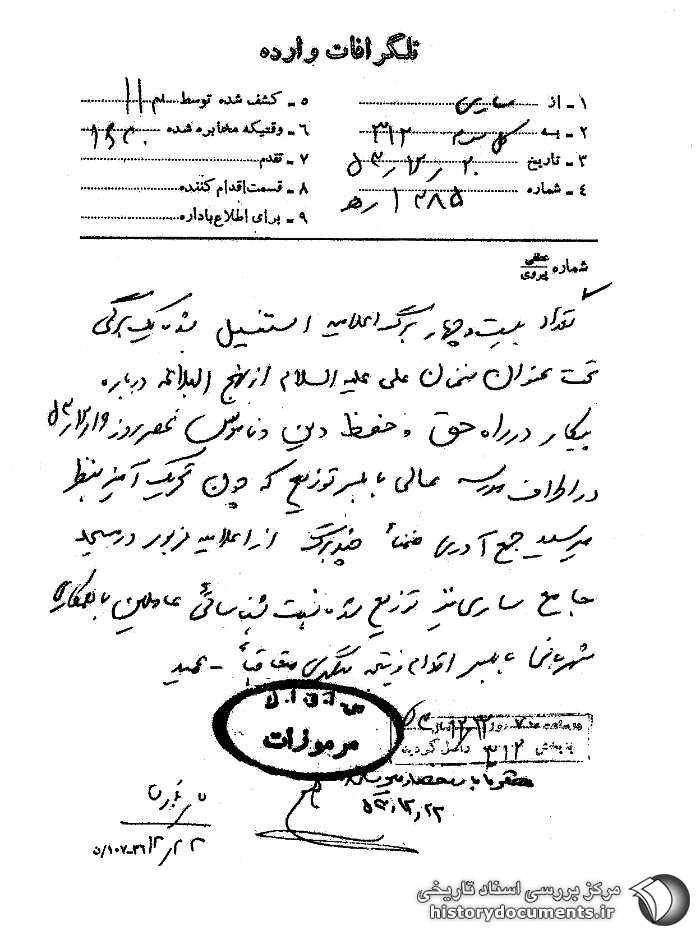 تلگرافات وارده
۱ - از ساری
۲ - به کل سوم ۳۱۲
۳ - تاریخ ۲۰ ر ۱۲ ر ۵۳
۴ - شماره ۱۲۸۵ ر ه‍
۵ - کشف شده توسط ۱۱
۶ - وقتیکه مخابره شده
۷ - تقدم
۸ - قسمت اقدام کننده
۹ - برای اطلاع باداره
شماره عطفی پیروی
تعداد بیست و چهار برگ اعلامیه استنسیل شده یک برگی
تحت عنوان سخنان علی علیه السلام از نهج البلاغه درباره
پیکار در راه حق و حفظ دین و ناموس عصر روز ۱۹ ر ۱۲ ر ۵۳
در اطراف مدرسه عالی بابلسر توزیع که چون تحریک آمیز بنظر
میرسید جمع آوری ضمناً چند برگ از اعلامیه مزبور در مسجد
جامع ساری نیز توزیع شده نسبت شناسائی عاملین با همکاری
شهربانی بابلسر اقدام نتیجه متعاقباً -
س.ا.و.ا.ک
مرموزات
ساعت ۷ روز
به بخش ۳۱۲ واصل گردید
۵۳,۱۲,۲۲
۱۲/۲۲
۵/۱۰۷-۳۶
مرکز بررسی اسناد تاریخی
historydocuments.ir